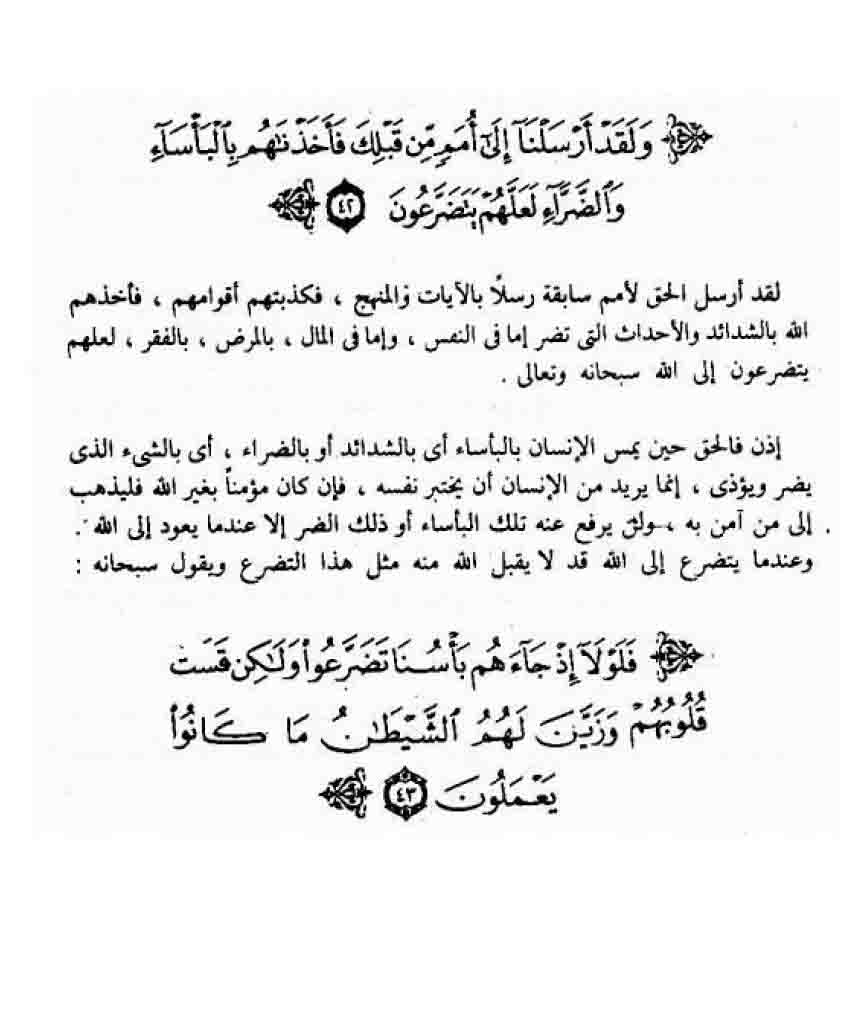 وَلَقَدْ أَرْسَلْنَآ إِلَىٰٓ أُمَمٍ مِّن قَبْلِكَ فَأَخَذْنَٰهُم بِٱلْبَأْسَآءِ
وَٱلضَّرَّآءِ لَعَلَّهُمْ يَتَضَرَّعُونَ ٤٢
لقد أرسل الحق لأمم سابقة رسلاً بالآيات والمنهج ، فكذبتهم أقوامهم ، فأخذهم
الله بالشدائد والأحداث التى تضر إما فى النفس ، وإما فى المال ، بالمرض ، بالفقر ، لعلهم
يتضرعون إلى الله سبحانه وتعالى .
إذن فالحق حين يمس الإنسان بالبأساء أى بالشدائد أو بالضراء ، أى بالشىء الذى
يضر ويؤذى ، إنما يريد من الإنسان أن يختبر نفسه ، فإن كان مؤمناً بغير الله فليذهب
إلى من آمن به ، ولن يرفع عنه تلك البأساء أو ذلك الضر إلا عندما يعود إلى الله .
وعندما يتضرع إلى الله قد لا يقبل الله منه مثل هذا التضرع ويقول سبحانه :
فَلَوْلَآ إِذْ جَآءَهُم بَأْسُنَا تَضَرَّعُوا۟ وَلَٰكِن قَسَتْ
قُلُوبُهُمْ وَزَيَّنَ لَهُمُ ٱلشَّيْطَٰنُ مَا كَانُوا۟
يَعْمَلُونَ ٤٣